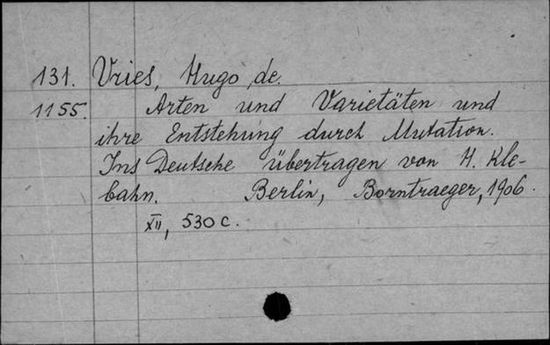 131. Vries, Hugo, de.
1155. Arten und Varietäten und
ihre Entstehung durch Mutation.
Ins Deutsche übertragen von H. Kle-
bahn. Berlin, Borntraeger, 1906.
XII, 530 c.